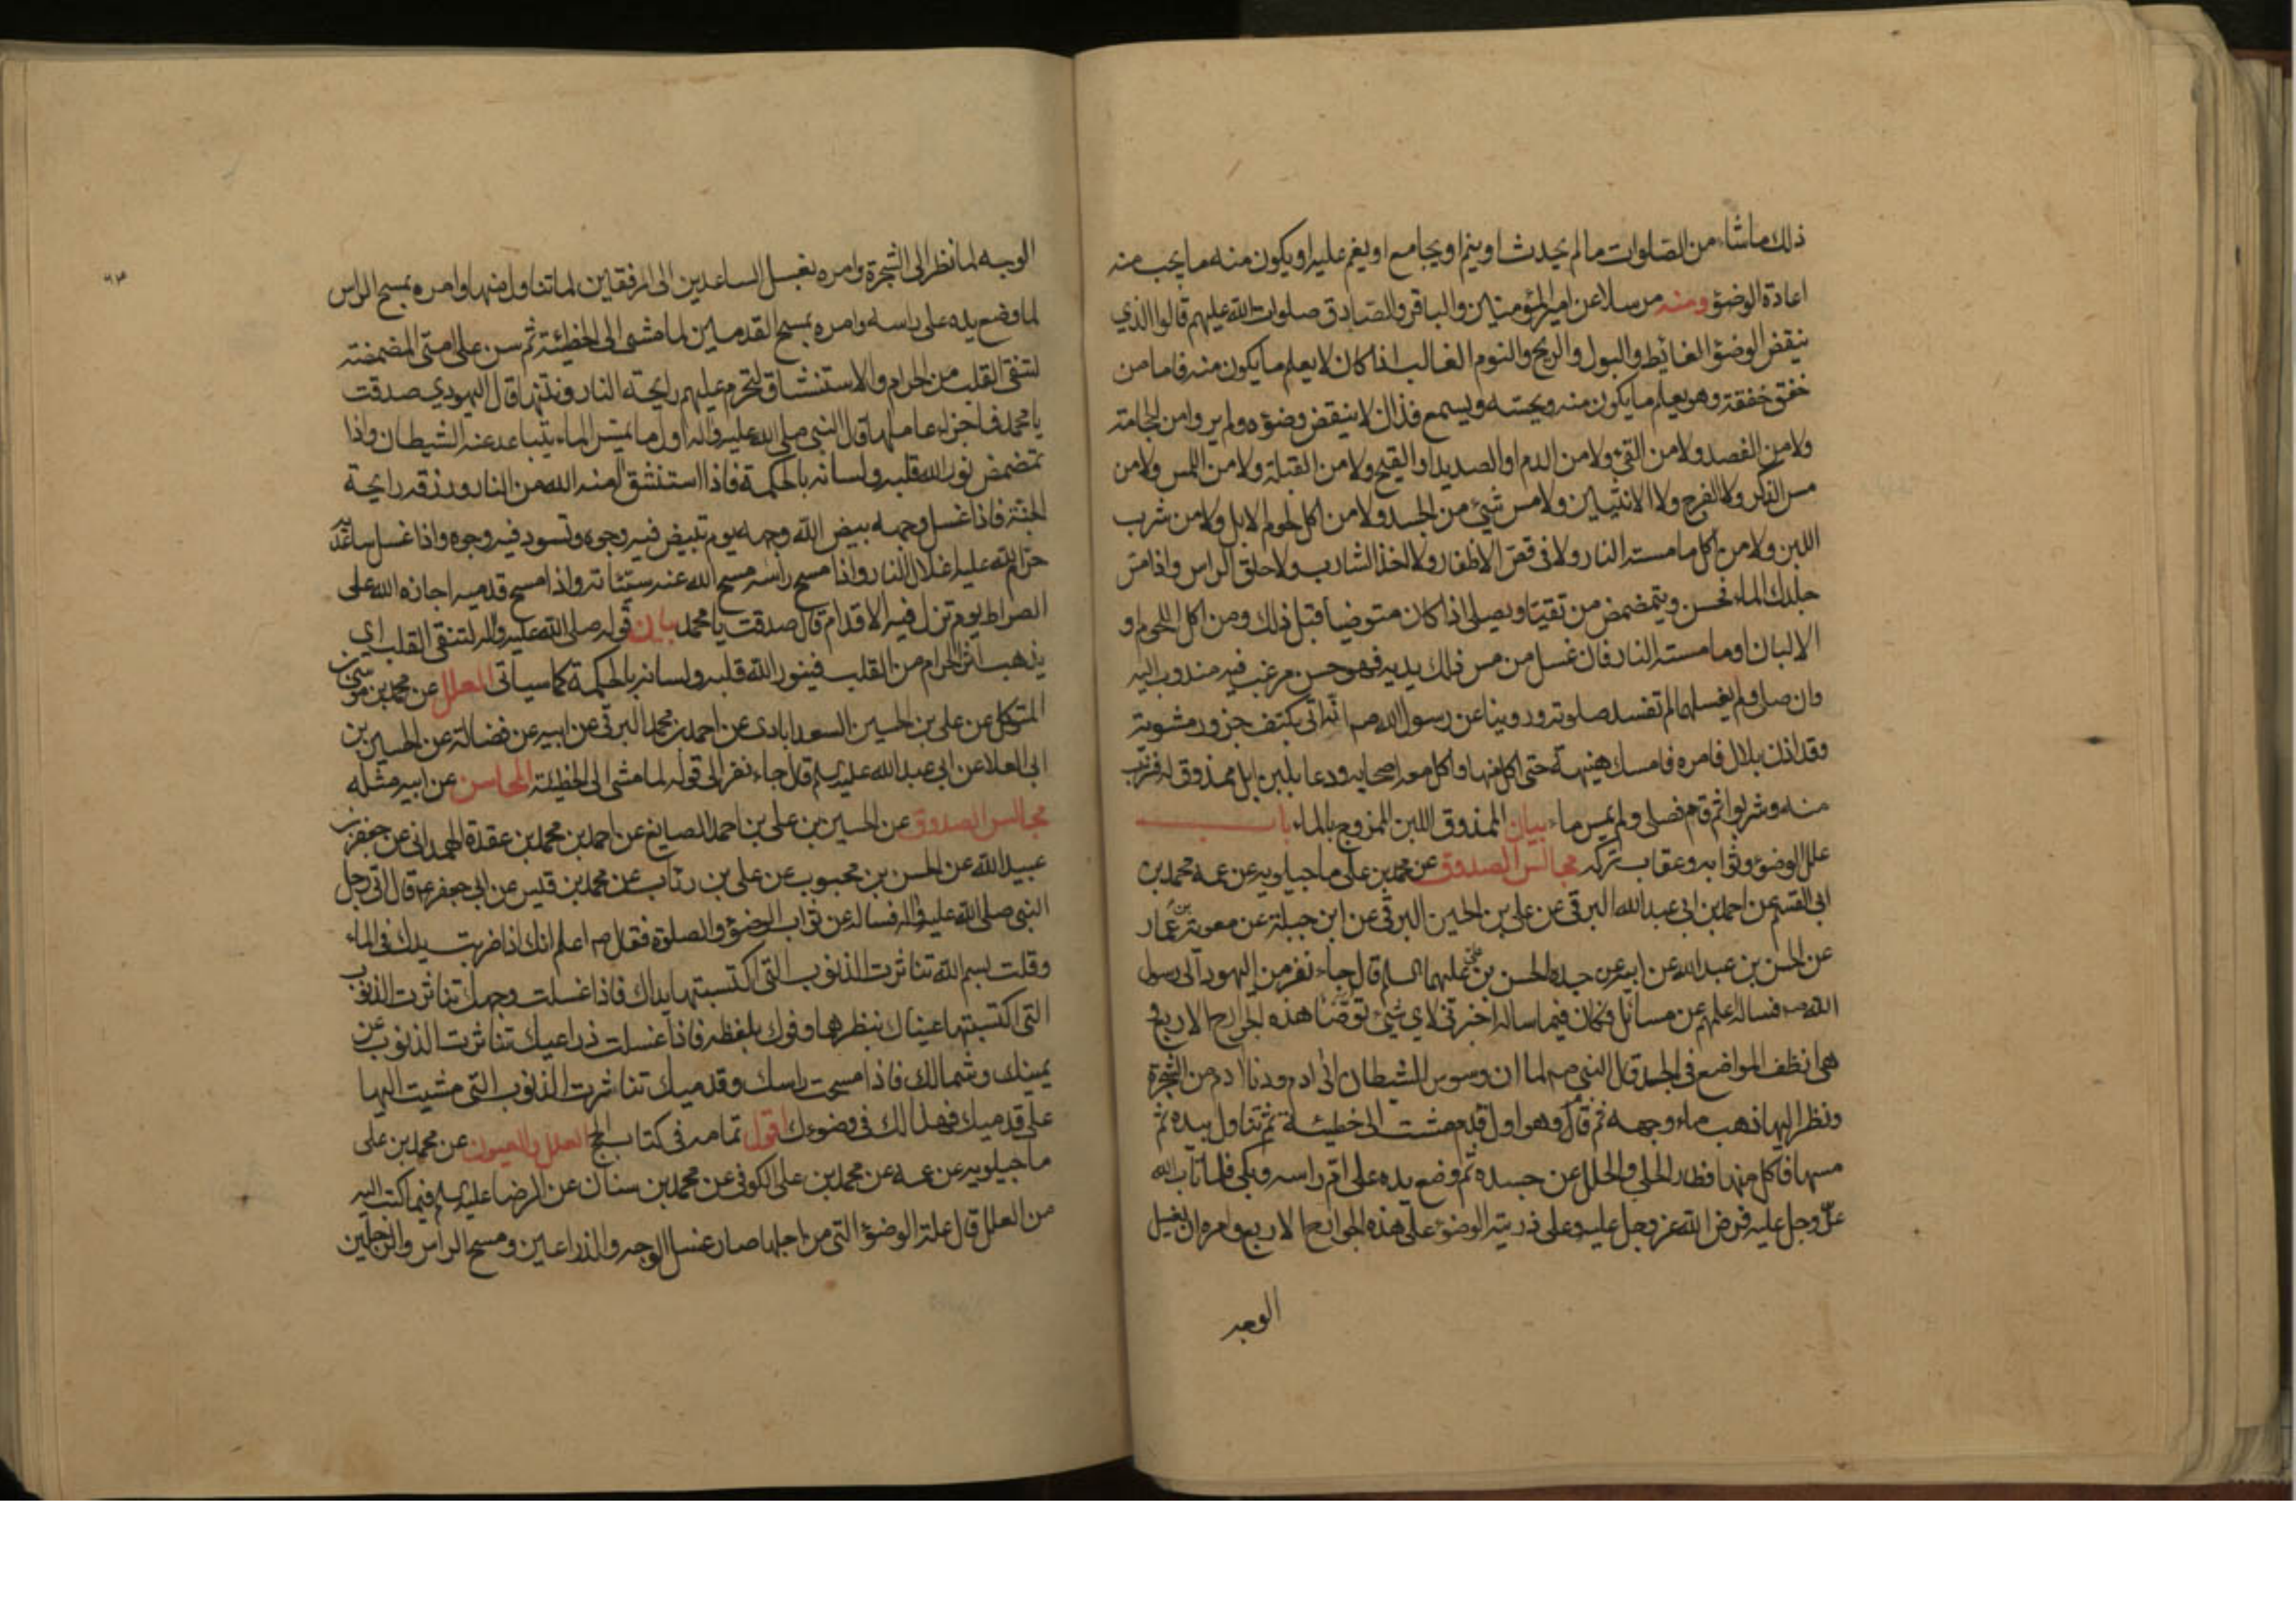 ذلك ماشاء من الصلوات مالم يحدث اوينم اويجامع اويغم عليه اويكون منه مايجب منه
اعادة الوضوء ومنه مرسلا عن اميرالمؤمنين والباقر والصادق صلوات الله عليهم قالوا الذي
ينقض الوضوء الغائط والبول والريح والنوم الغالب اذا كان لا يعلم مايكون منه فاما من
خفق خفقة وهو يعلم مايكون منه ويحسه ويسمع فذاك لاينقض وضوءه ولم يروا من الحجامة
ولا من الفصد ولا من القئ ولا من الدم او الصديد او القيح ولا من القبلة ولا من اللمس ولا من
مس الذكر ولا الفرج ولا الانثيين ولا مس شئ من الجسد ولا من اكل لحوم الابل ولا من شرب
اللبن ولا من اكل ما مسته النار ولا فى قص الاظفار ولا اخذ الشارب ولا حلق الراس واذا مس
جلدك الماء فحسن ويتمضمض من تقيئا ويصلى اذا كان متوضيا قبل ذلك ومن اكل اللحوم او
الالبان او ما مسته النار فان غسل من مس ذلك يديه فهو حسن مرغب فيه مندوب اليه
وان صلى ولم يغسلهما لم تفسد صلوته وروينا عن رسول الله صم انه اتى بكتف جزور مشوية
وقد اذن بلال فامره فامسك هنيهة حتى اكل منها واكل معه اصحابه ودعا بلبن ابل ممذوق له فشرب
منه وشربوا ثم قام فصلى ولم يمس ماء بيان الممذوق اللبن الممزوج بالماء باب
علل الوضوء وثوابه وعقاب تركه مجالس الصدوق عن محمد بن على ماجيلويه عن عمه محمد بن
ابى القسم عن احمد بن ابى عبدالله البرقى عن على بن الحسين البرقى عن ابن جبلة عن معوية بن عمار
عن الحسن بن عبدالله عن ابيه عن جده الحسن بن على عليهما السلم قال جاء نفر من اليهود الى رسول
الله صم فساله اعلمهم عن مسائل فكان فيما ساله اخبرنى لاى شئ توضا هذه الجوارح الاربع و
هى انظف المواضع فى الجسد قال النبى صم لما ان وسوس الشيطان الى ادم ودنا ادم من الشجرة
ونظر اليها ذهب ماء وجهه ثم قام وهو اول قدم مشت الى خطيئة ثم تناول بيده ثم
مسها فاكل منها فطار الحلى والحلل عن جسده ثم وضع يده على ام راسه وبكى فلما تاب الله
عز وجل عليه فرض الله عز وجل عليه وعلى ذريته الوضوء على هذه الجوارح الاربع وامره ان يغسل
الوجه
٦٣
الوجه لما نظر الى الشجرة وامره بغسل الساعدين الى المرفقين لما تناول منها وامره بمسح الراس
لما وضع يده على راسه وامره بمسح القدمين لما مشى الى الخطيئة ثم سن على امتى المضمضة
لتنقى القلب من الحرام والاستنشاق لتحرم عليهم رايحة النار ونتنها قال اليهودي صدقت
يا محمد فما جزاء عاملها قال النبى صلى الله عليه واله اول ما يمس الماء يتباعد عنه الشيطان واذا
تمضمض نور الله قلبه ولسانه بالحكمة فاذا استنشق امنه الله من النار ورزقه رايحة
الجنة فاذا غسل وجهه بيض الله وجهه يوم تبيض فيه وجوه وتسود فيه وجوه واذا غسل ساعديه
حرم الله عليه اغلال النار واذا مسح راسه مسح الله عنه سيئاته واذا مسح قدميه اجازه الله على
الصراط يوم تزل فيه الاقدام قال صدقت يا محمد بيان قوله صلى الله عليه واله لتنقى القلب اي
يذهب اثر الحرام من القلب فينور الله قلبه ولسانه بالحكمة كما سياتى العلل عن محمد بن موسى بن
المتوكل عن على بن الحسين السعدابادى عن احمد بن محمد البرقى عن ابيه عن فضالة عن الحسين بن
ابى العلا عن ابى عبدالله عليه السلم قال جاء نفر الى قوله لما مشى الى الخطيئة المحاسن عن ابيه مثله
مجالس الصدوق عن الحسين بن على بن احمد الصايغ عن احمد بن محمد بن عقدة الهمدانى عن جعفر بن
عبيدالله عن الحسن بن محبوب عن على بن رئاب عن محمد بن قيس عن ابى جعفر ع قال اتى رجل
النبى صلى الله عليه واله فساله عن ثواب الوضوء والصلوة فقال صم اعلم انك اذا ضربت يدك فى الماء
وقلت بسم الله تناثرت الذنوب التى اكتسبتها يداك فاذا غسلت وجهك تناثرت الذنوب
التى اكتسبتها عيناك بنظرهما وفوك بلفظه فاذا غسلت ذراعيك تناثرت الذنوب عن
يمينك وشمالك فاذا مسحت راسك وقدميك تناثرت الذنوب التى مشيت اليها
على قدميك فهذا لك فى وضوءك اقول تمامه فى كتاب الحج العلل والعيون عن محمد بن على
ماجيلويه عن عمه عن محمد بن على الكوفى عن محمد بن سنان عن الرضا عليه السلم فيما كتب اليه
من العلل قال علة الوضوء التى من اجلها صار غسل الوجه والذراعين ومسح الراس والرجلين